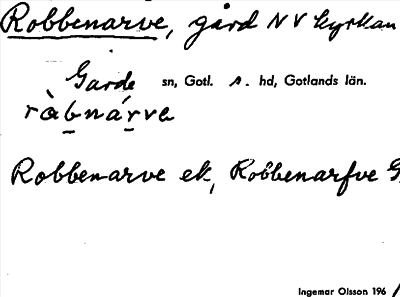 Robbenarve, gård NV kyrkan
Garde sn, Gotl. s. hd, Gotlands län.
ràbnárve
Robbenarve ek, Robbenarfve G
Ingemar Olsson 196